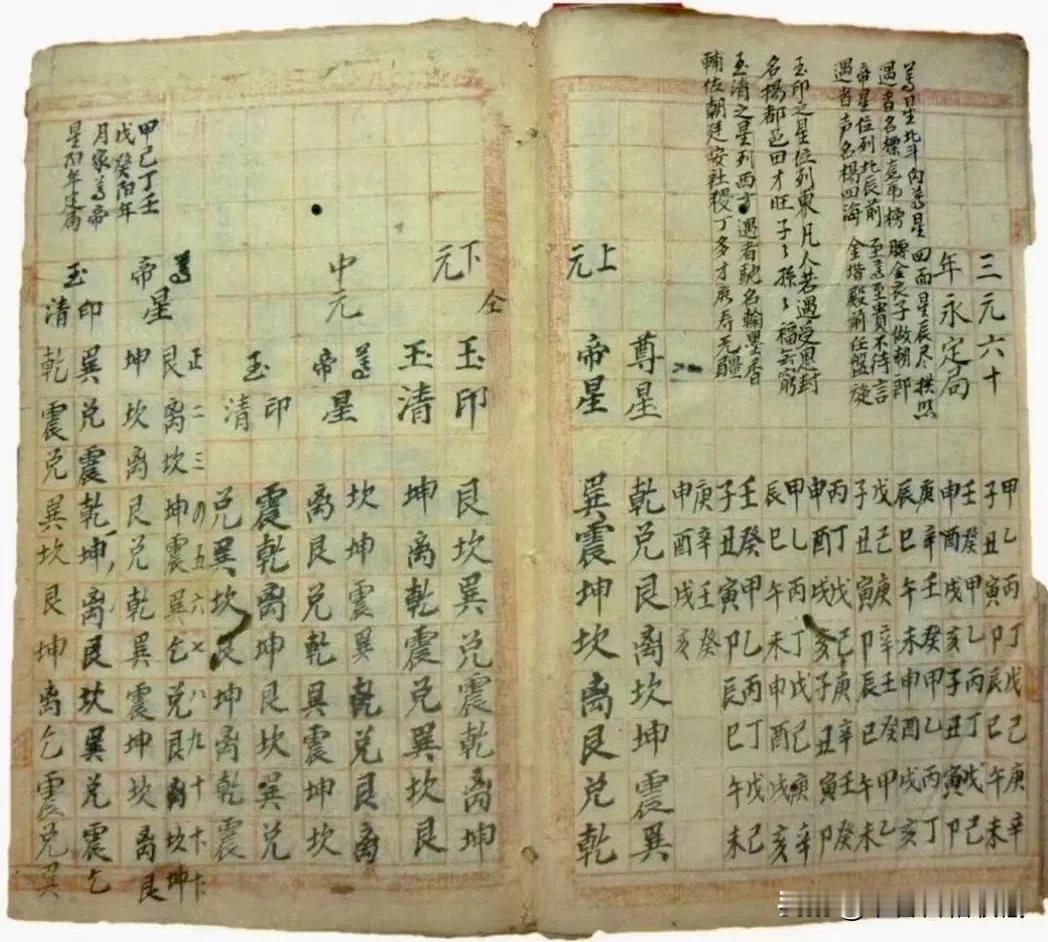 三元六十
年永定局
北斗內尊星 四面星辰尽拱照
遇者名標 榜 腰金衣子做朝郎
帝星位列北辰前 至尊至貴不待言
遇者声名楊四海 金堦殿前任盤旋
玉印之星位列東 凡人若遇受恩封
名楊都邑田才旺 子々孫々福云窮
玉清之星列西方 遇者馳名翰墨香
輔佐朝廷安社稷 丁多才广寿无疆
甲乙丙丁戊己庚辛
子丑寅卯辰巳午未
壬癸甲乙丙丁戊己
申酉戌亥子丑寅卯
庚辛壬癸甲乙丙丁
辰巳午未申酉戌亥
戊己庚辛壬癸甲乙
子丑寅卯辰巳午未
丙丁戊己庚辛壬癸
申酉戌亥子丑寅卯
甲乙丙丁戊己庚辛
辰巳午未申酉戌亥
壬癸甲乙丙丁戊己
子丑寅卯辰巳午未
庚辛壬癸
申酉戌亥
上元
尊星 乾兑艮离坎坤震巽
帝星 巽震坤坎离艮兑乾
仝
下元
玉印 艮坎巽兑震乾离坤
玉清 坤离乾震兑巽坎艮
中元
尊星 坎坤震巽乾兑艮离
帝 离艮兑乾巽震坤坎
玉印 震乾离坤艮坎巽兑
清 兑巽坎艮坤离乾震
正二三四五六七八九十
尊星 艮离坎坤震巽乞兑艮离坎坤
帝 坤坎离艮兑乾巽震坤坎离艮
玉印 巽兑震乾坤离艮坎巽兑震乞
清 乾震兑巽坎艮坤离乞震兑巽
甲己丁壬
戊癸阳年
月家尊帝
星阳年建